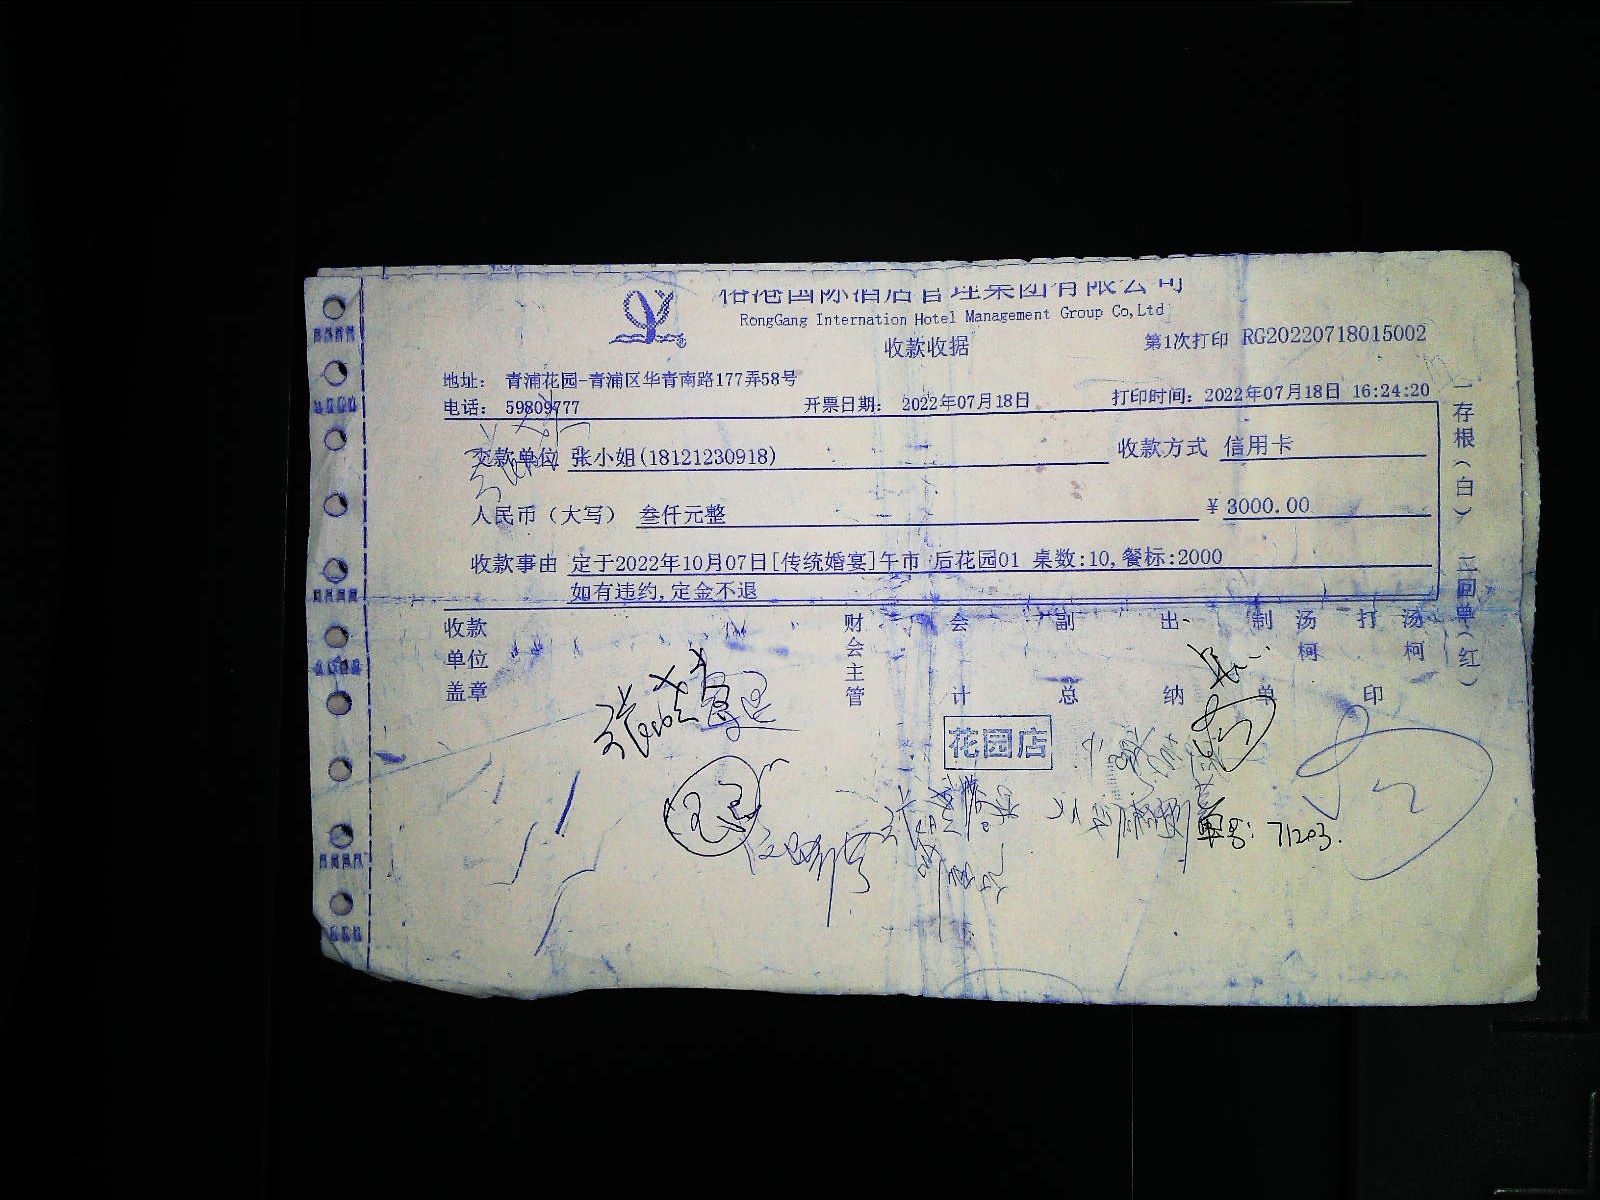 国际酒店管理集团有限公司
RongGang Internation Hotel Management Group Co,Ltd
收款收据
第1次打印 RG20220718015002
地址： 青浦花园-青浦区华青南路177弄58号
电话： 59809777
开票日期： 2022年07月18日
打印时间：2022年07月18日 16:24:20
交款单位 张小姐(18121230918)
收款方式 信用卡
人民币（大写） 叁仟元整
￥3000.00
收款事由 定于2022年10月07日[传统婚宴]午市 后花园01 桌数:10,餐标:2000
如有违约,定金不退
收款单位盖章
财会主管
会计
副总
出纳
制单
汤柯
打印
汤柯
花园店
单号：71203.
一存根（白） 三回单（红）